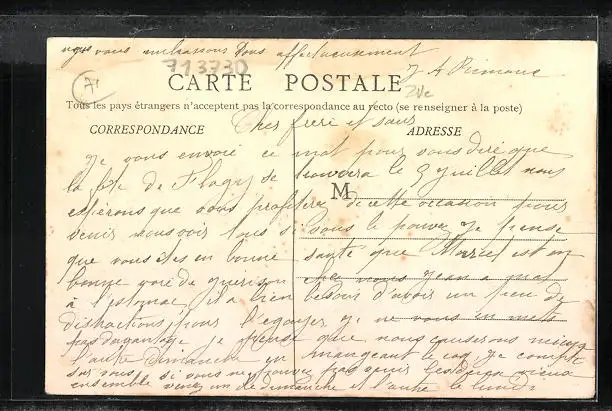 nous vous embrassons tous affectueusement
713730
J A Rimaux
CARTE POSTALE
Tous les pays étrangers n'acceptent pas la correspondance au recto (se renseigner à la poste)
CORRESPONDANCE
ADRESSE
Cher frere et sœur
M
je vous envoie ce mot pour vous dire que
la fete de Flagy se trouvera le 9 juillet nous
esperons que vous profiterez de cette occasion pour
venir nous voir tous si vous le pouvez je pense
que vous etes en bonne santé que Marcel est en
bonne voie de guerison vous Jean a mal
à l'estomac il a bien besoin d'avoir un peu de
distractions pour l'egayer je ne vous en mets
pas davantage je pense que nous causerons mieux
l'autre dimanche en mangeant le coq je compte
sur vous si vous ne pouvez pas venir
ensemble venez un dimanche et l'autre le lundi